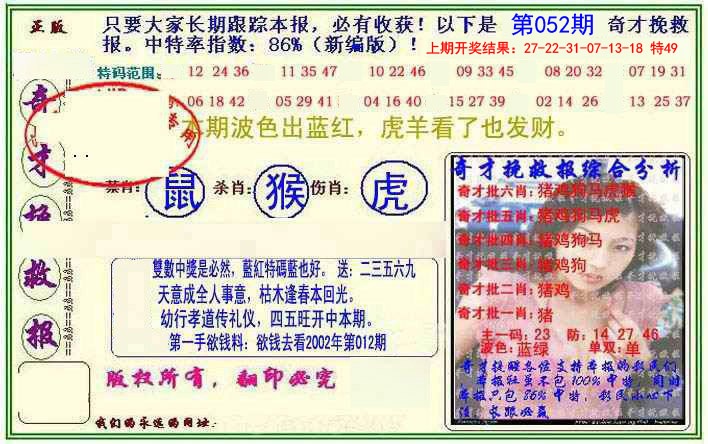 正版
只要大家长期跟踪本报，必有收获！以下是 第052期 奇才挽救
报。中特率指数：86%（新编版）！上期开奖结果：27-22-31-07-13-18 特49
特码范围: 12 24 36 11 35 47 10 22 46 09 33 45 08 20 32 07 19 31
06 18 42 05 29 41 04 16 40 15 27 39 02 14 26 13 25 37
本期波色出蓝红，虎羊看了也发财。
禁肖: 鼠 杀肖: 猴 伤肖: 虎
奇
才
救
报
雙數中獎是必然，藍紅特碼藍也好。 送：二三五六九
天意成全人事意，枯木逢春本回光。
幼行孝道传礼仪，四五旺开中本期。
第一手欲钱料：欲钱去看2002年第012期
版权所有，翻印必究
我们的永远的网址:
奇才挽救报综合分析
奇才批六肖: 猪鸡狗马虎猴
奇才批五肖: 猪鸡狗马虎
奇才批四肖: 猪鸡狗马
奇才批三肖: 猪鸡狗
奇才批二肖: 猪鸡
奇才批一肖: 猪
主一码: 23 防: 14 27 46
波色: 蓝绿 单双: 单
奇才挽救各位支持本报的彩民们
本报驻虽不包100%中特，同时
本报只包86%中特，彩民小心下
注